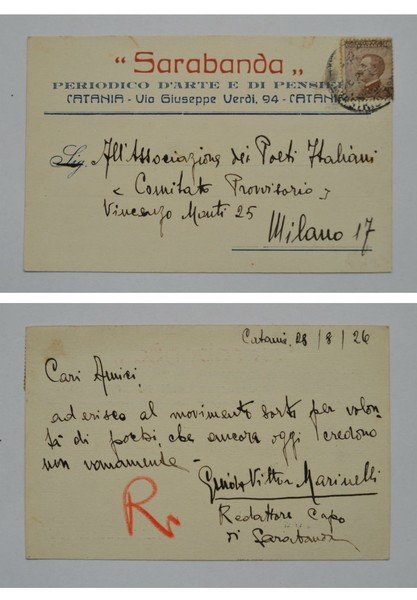 "Sarabanda„
PERIODICO D'ARTE E DI PENSIE
CATANIA - Via Giuseppe Verdi, 94 - CATANI
Sig. All'Associazione dei Poeti Italiani
"Comitato Provvisorio"
Vincenzo Monti 25
Milano 17
Catania, 28/8/26
Cari Amici,
aderisco al movimento sorto per volon-
tà di poeti, che ancora oggi credono
non vanamente -
Guido Vittor Marinelli
Redattore Capo
di Sarabanda
R